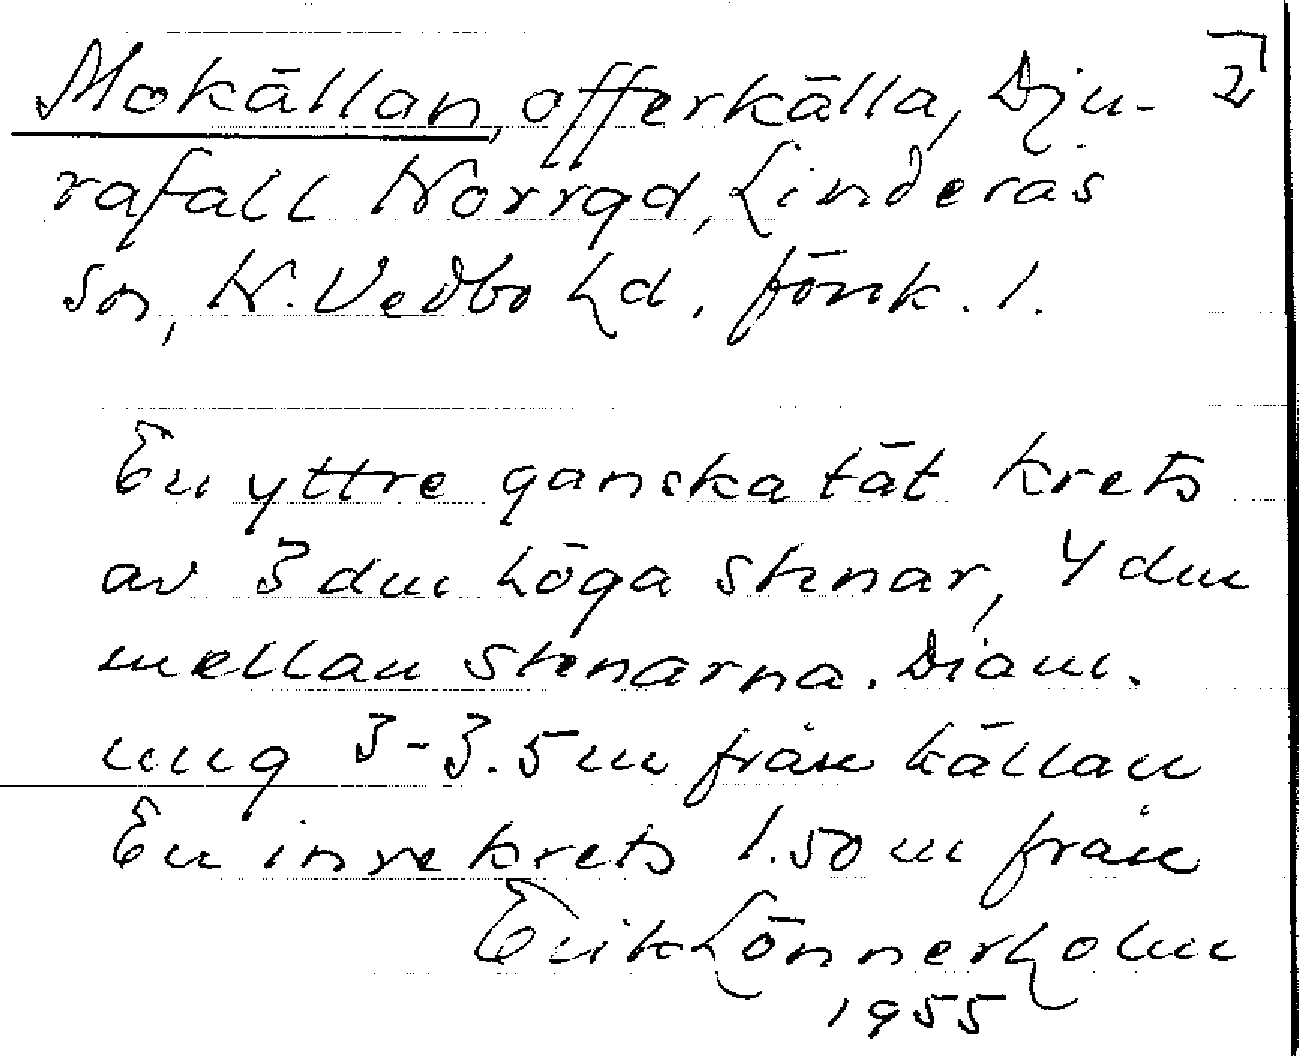 Mokällan, offerkälla, Dju- 2
rafall Norrgd, Linderås
sn, N. Vedbo hd, Jönk. l.
En yttre ganska tät krets
av 3 dm höga stenar, 4 dm
mellan stenarna. Diam.
ung 3-3.5 m från källan
En inre krets 1.50 m från
Erik Lönnerholm
1955